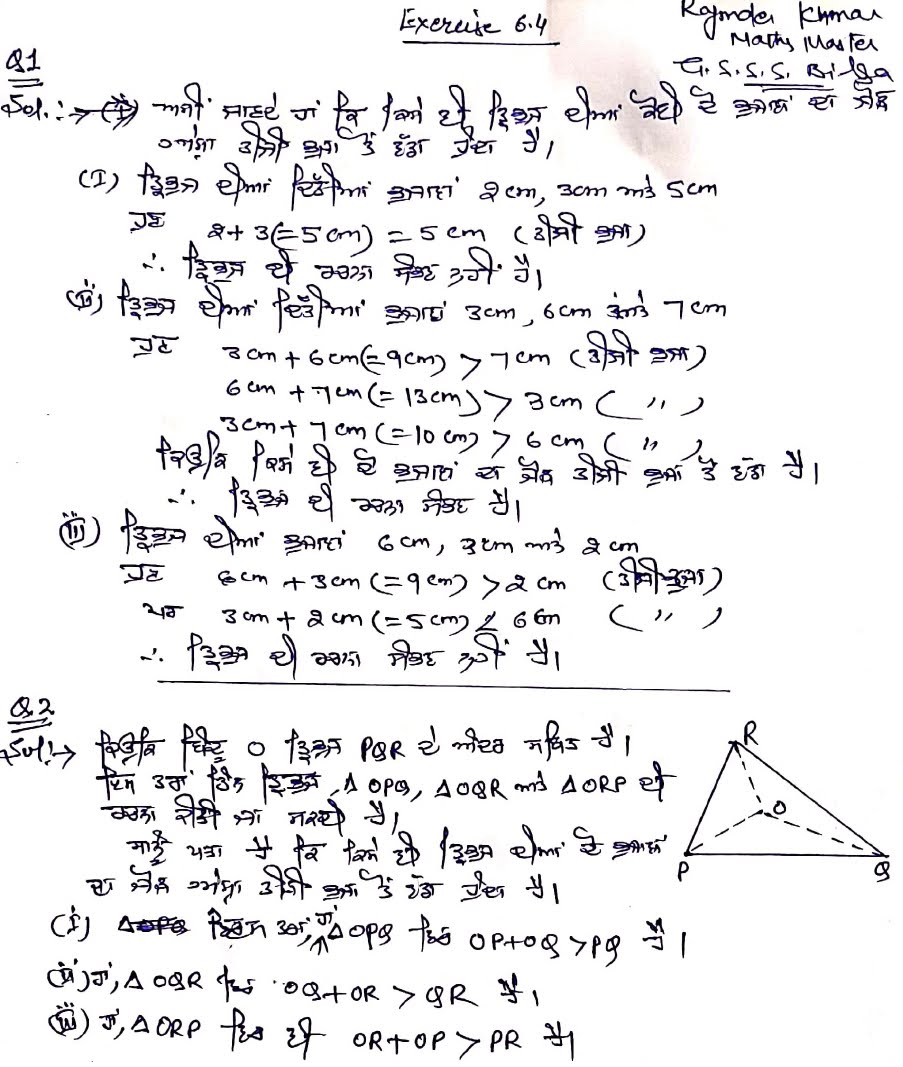 Exercise 6.4
Rajinder Kumar
Maths Master
G.S.S.S. Bilga
Q1
Sol:→ (i) ਅਸੀਂ ਜਾਣਦੇ ਹਾਂ ਕਿ ਕਿਸੇ ਵੀ ਤ੍ਰਿਭੁਜ ਦੀਆਂ ਕੋਈ ਦੋ ਭੁਜਾਵਾਂ ਦਾ ਜੋੜ
ਹਮੇਸ਼ਾ ਤੀਜੀ ਭੁਜਾ ਤੋਂ ਵੱਡਾ ਹੁੰਦਾ ਹੈ।
(I) ਤ੍ਰਿਭੁਜ ਦੀਆਂ ਦਿੱਤੀਆਂ ਭੁਜਾਵਾਂ 2 cm, 3cm ਅਤੇ 5 cm
ਹੁਣ 2 + 3(=5 cm) = 5 cm (ਤੀਜੀ ਭੁਜਾ)
∴ ਤ੍ਰਿਭੁਜ ਦੀ ਰਚਨਾ ਸੰਭਵ ਨਹੀਂ ਹੈ।
(ii) ਤ੍ਰਿਭੁਜ ਦੀਆਂ ਦਿੱਤੀਆਂ ਭੁਜਾਵਾਂ 3cm, 6cm ਅਤੇ 7 cm
ਹੁਣ 3cm + 6cm(=9cm) > 7cm (ਤੀਜੀ ਭੁਜਾ)
6cm + 7cm(= 13cm) > 3cm ( ,, )
3cm + 7cm (=10 cm) > 6 cm ( ,, )
ਕਿਉਂਕਿ ਕਿਸੇ ਵੀ ਦੋ ਭੁਜਾਵਾਂ ਦਾ ਜੋੜ ਤੀਜੀ ਭੁਜਾ ਤੋਂ ਵੱਡਾ ਹੈ।
∴ ਤ੍ਰਿਭੁਜ ਦੀ ਰਚਨਾ ਸੰਭਵ ਹੈ।
(iii) ਤ੍ਰਿਭੁਜ ਦੀਆਂ ਭੁਜਾਵਾਂ 6cm, 3cm ਅਤੇ 2 cm
ਹੁਣ 6cm + 3cm (=9cm) > 2 cm (ਤੀਜੀ ਭੁਜਾ)
ਪਰ 3cm + 2 cm (=5cm) < 6 cm ( ,, )
∴ ਤ੍ਰਿਭੁਜ ਦੀ ਰਚਨਾ ਸੰਭਵ ਨਹੀਂ ਹੈ।
Q.2
Sol:→ ਕਿਉਂਕਿ ਬਿੰਦੂ O ਤ੍ਰਿਭੁਜ PQR ਦੇ ਅੰਦਰ ਸਥਿਤ ਹੈ।
ਇਸ ਤਰਾਂ ਤਿੰਨ ਤ੍ਰਿਭੁਜ, Δ OPQ, Δ OQR ਅਤੇ Δ ORP ਦੀ
ਰਚਨਾ ਕੀਤੀ ਜਾ ਸਕਦੀ ਹੈ।
ਸਾਨੂੰ ਪਤਾ ਹੈ ਕਿ ਕਿਸੇ ਵੀ ਤ੍ਰਿਭੁਜ ਦੀਆਂ ਦੋ ਭੁਜਾਵਾਂ
ਦਾ ਜੋੜ ਹਮੇਸ਼ਾ ਤੀਜੀ ਭੁਜਾ ਤੋਂ ਵੱਡਾ ਹੁੰਦਾ ਹੈ।
R
O
P
Q
(i) ਇਸ ਤਰਾਂ, ਹਾਂ Δ OPQ ਵਿੱਚ OP+OQ > PQ ਹੈ।
(ii) ਹਾਂ, Δ OQR ਵਿੱਚ OQ+OR > QR ਹੈ।
(iii) ਹਾਂ, Δ ORP ਵਿੱਚ ਵੀ OR+OP > PR ਹੈ।